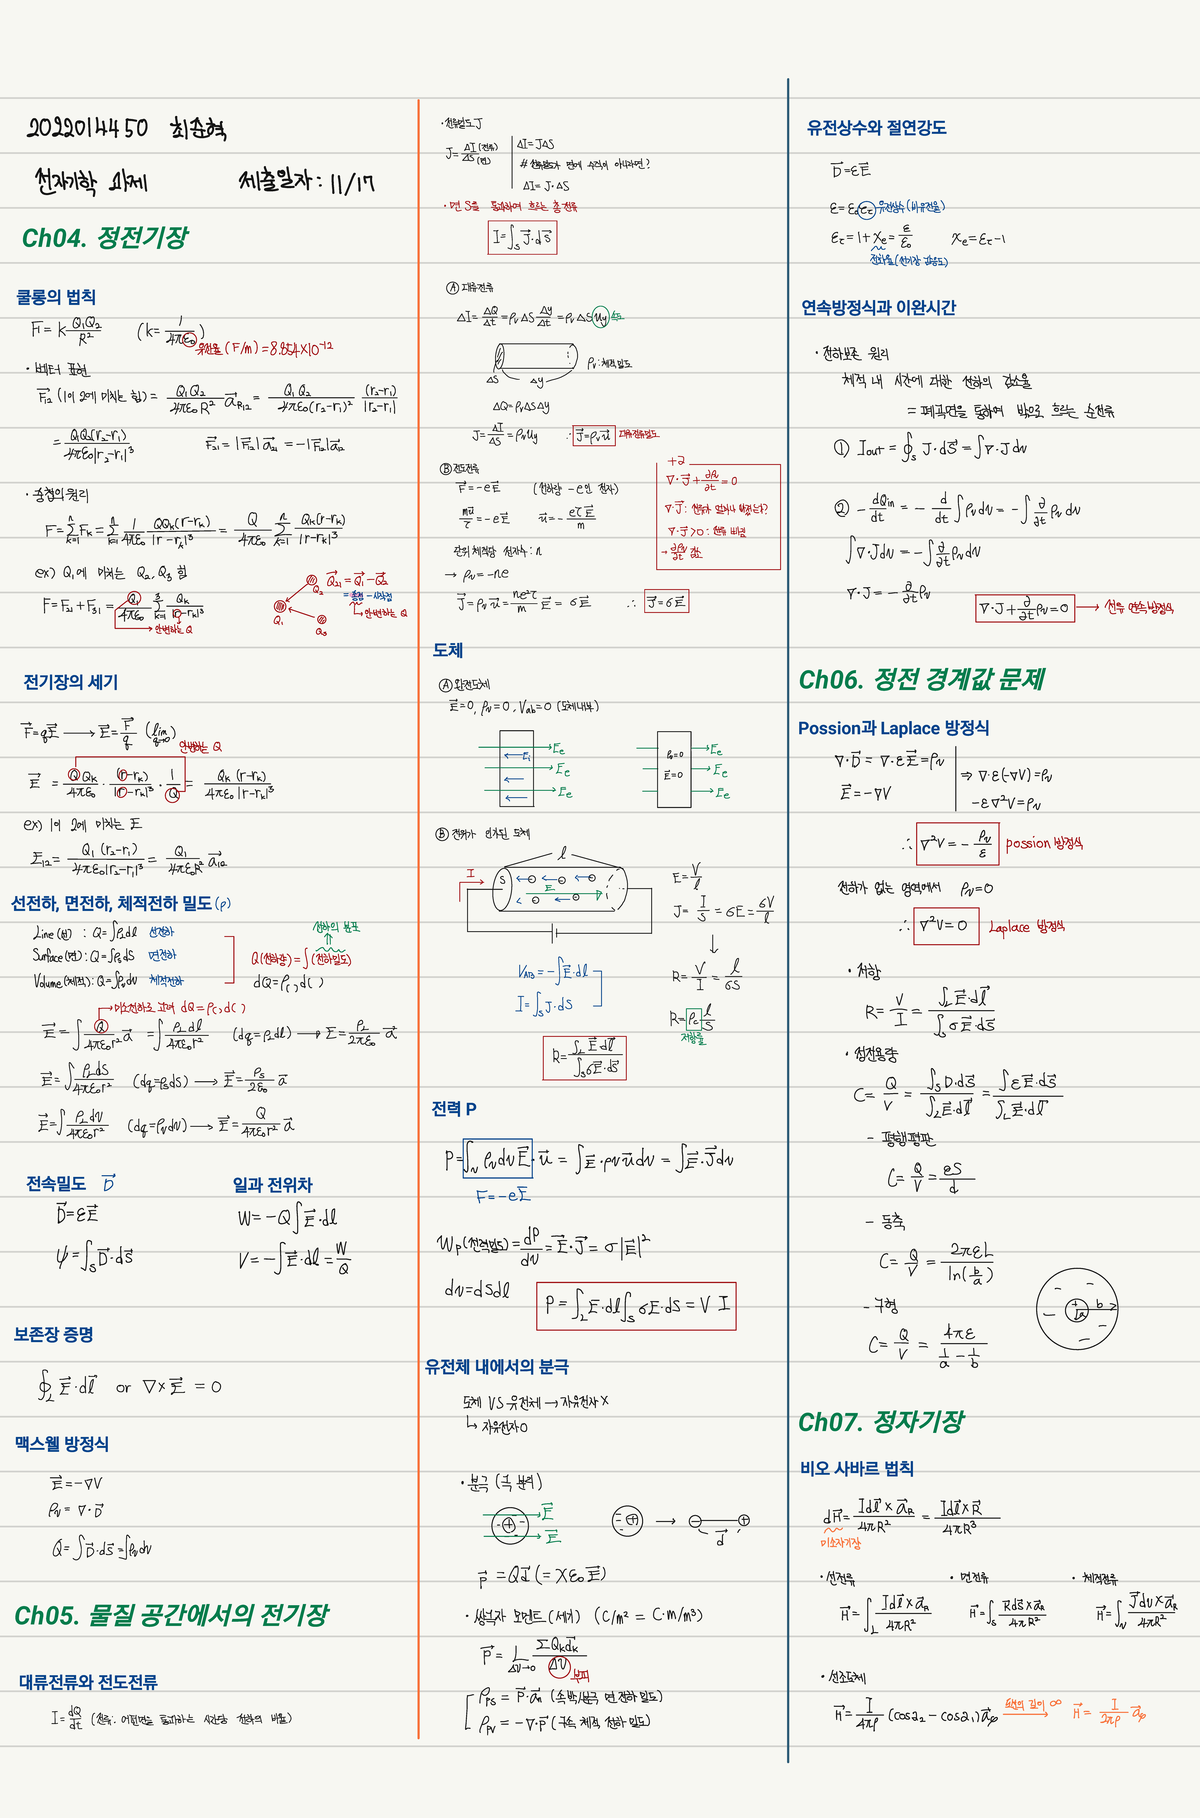 2022014450 최준혁
전자기학 과제 제출일자 : 11/17
Ch04. 정전기장
쿨롱의 법칙
F = k Q₁Q₂/R² (k = 1/4πε₀)
유전율 (F/m) = 8.854×10⁻¹²
· 벡터 표현
F₁₂ (1이 2에 미치는 힘) = Q₁Q₂/4πε₀R² a_R₁₂ = Q₁Q₂/4πε₀(r₂-r₁)² (r₂-r₁)/|r₂-r₁|
= Q₁Q₂(r₂-r₁)/4πε₀|r₂-r₁|³ F₂₁ = |F₁₂|a₂₁ = -|F₁₂|a₁₂
· 중첩의 원리
F = Σₖ₌₁ⁿ Fₖ = Σₖ₌₁ⁿ 1/4πε₀ QQₖ(r-rₖ)/|r-rₖ|³ = Q/4πε₀ Σₖ₌₁ⁿ Qₖ(r-rₖ)/|r-rₖ|³
ex) Q₁에 미치는 Q₂, Q₃ 힘
F = F₂₁ + F₃₁ = Q₁/4πε₀ Σₖ₌₁³ Qₖ/|r-rₖ|³
→ 안변하는 Q
Q₂₁ = Q₁ - Q₂
= 종점 - 시작점
→ 안변하는 Q
Q₂
Q₁
Q₃
전기장의 세기
F = qE → E = F/q (lim q→0)
안변하는 Q
E = QQₖ/4πε₀ · (r-rₖ)/|r-rₖ|³ · 1/Q = Qₖ(r-rₖ)/4πε₀|r-rₖ|³
ex) 1이 2에 미치는 E
E₁₂ = Q₁(r₂-r₁)/4πε₀|r₂-r₁|³ = Q₁/4πε₀R² a₁₂
선전하, 면전하, 체적전하 밀도 (ρ)
Line(선) : Q = ∫ρ_L dl 선전하
Surface(면) : Q = ∫ρ_s dS 면전하
Volume(체적) : Q = ∫ρ_v dv 체적전하
전하의 분포
Q(전하량) = ∫(전하밀도)
dQ = ρ( )d( )
→ 미소전하로 고쳐 dQ = ρ( )d( )
E = ∫Q/4πε₀r² a = ∫ρ_L dl/4πε₀r² (dq = ρ_L dl) → E = ρ_L/2πε₀ a
E = ∫ρ_L dS/4πε₀r² (dq = ρ_s dS) → E = ρ_s/2ε₀ a
E = ∫ρ_L dv/4πε₀r² (dq = ρ_v dv) → E = Q/4πε₀r² a
전속밀도 D
D = εE
ψ = ∫_S D·dS
일과 전위차
W = -Q∫E·dl
V = -∫E·dl = W/Q
보존장 증명
∮_L E·dl or ∇×E = 0
맥스웰 방정식
E = -∇V
ρ_v = ∇·D
Q = ∫D·dS = ∫ρ_v dv
Ch05. 물질 공간에서의 전기장
대류전류와 전도전류
I = dQ/dt (전류: 어떤면을 통과하는 시간당 전하의 비율)
· 전류밀도 J
J = ΔI(전류)/ΔS(면)
ΔI = JΔS
# 전류밀도가 면에 수직이 아니라면?
ΔI = J·ΔS
· 면 S을 통과하여 흐르는 총 전류
I = ∫_S J·dS
Ⓐ 대류전류
ΔI = ΔQ/Δt = ρ_v ΔS Δy/Δt = ρ_v ΔS u_y 속도
ρ_v : 체적밀도
ΔS Δy
ΔQ = ρ_v ΔSΔy
J = ΔI/ΔS = ρ_v u_y ∴ J = ρ_v u 대류전류밀도
Ⓑ 전도전류
F = -eE (전하량 -e인 전자)
mu/τ = -eE u = -eτE/m
단위 체적당 전자수 : n
→ ρ_v = -ne
J = ρ_v u = ne²τ/m E = σE ∴ J = σE
+2
∇·J + ∂ρ_v/∂t = 0
∇·J : 전류가 얼마나 발생하는가?
∇·J > 0 : 전류
→ ∂ρ_v/∂t 감소
도체
Ⓐ 완전도체
E = 0, ρ_v = 0, V_ab = 0 (도체내부)
E_i E_e
E_e
E_e
ρ_v = 0
E = 0
E_e
E_e
E_e
Ⓑ 전위가 인가된 도체
l
I S E
E = V/l
J = I/S = σE = σV/l
↓
R = V/I = l/σS
R = ρ_c l/S
저항률
V_AB = -∫E·dl
I = ∫_S J·dS
R = ∫_L E·dl/∫_S σE·dS
전력 P
P = ∫_v ρ_v dv E·u = ∫E·ρ_v u dv = ∫E·J dv
F = -eE
W_P(전력밀도) = dP/dv = E·J = σ|E|²
dv = dSdl
P = ∫_L E·dl ∫_S σE·dS = V I
유전체 내에서의 분극
도체 VS 유전체 → 자유전자 X
↳ 자유전자 O
· 분극 (극 분리)
E
E
d
P = Qd (= χε₀E)
· 쌍극자 모멘트(세기) (C/m² = C·m/m³)
P = lim Δv→0 ΣQₖdₖ/Δv 부피
ρ_ps = P·a_n (속박/분극 면 전하 밀도)
ρ_pv = -∇·P (구속 체적 전하 밀도)
유전상수와 절연강도
D = εE
ε = ε₀ε_r 유전상수(비유전율)
ε_r = 1 + χ_e = ε/ε₀ χ_e = ε_r - 1
전화율(전기장 감응도)
연속방정식과 이완시간
· 전하보존 원리
체적 내 시간에 대한 전하의 감소율
= 폐곡면을 통하여 밖으로 흐르는 순전류
① I_out = ∮_S J·dS = ∫∇·J dv
② -dQ_in/dt = -d/dt ∫ρ_v dv = -∫∂/∂t ρ_v dv
∫∇·J dv = -∫∂/∂t ρ_v dv
∇·J = -∂/∂t ρ_v
∇·J + ∂/∂t ρ_v = 0 → 전류 연속방정식
Ch06. 정전 경계값 문제
Possion과 Laplace 방정식
∇·D = ∇·εE = ρ_v
E = -∇V
⇒ ∇·ε(-∇V) = ρ_v
-ε∇²V = ρ_v
∴ ∇²V = -ρ_v/ε possion 방정식
전하가 없는 영역에서 ρ_v = 0
∴ ∇²V = 0 Laplace 방정식
· 저항
R = V/I = ∫_L E·dl/∫_S σE·dS
· 정전용량
C = Q/V = ∫_S D·dS/∫_L E·dl = ∫εE·dS/∫_L E·dl
- 평행평판
C = Q/V = εS/d
- 동축
C = Q/V = 2πεL/ln(b/a)
- 구형
C = Q/V = 4πε/(1/a - 1/b)
a b
Ch07. 정자기장
비오 사바르 법칙
dH = Idl×a_R/4πR² = Idl×R/4πR³
미소자기장
· 선전류 · 면전류 · 체적전류
H = ∫_L Idl×a_R/4πR² H = ∫_S KdS×a_R/4πR² H = ∫_v Jdv×a_R/4πR²
· 선조도체
H = I/4πρ (cosα₂ - cosα₁)a_φ 도선의 길이 ∞ → H = I/2πρ a_φ